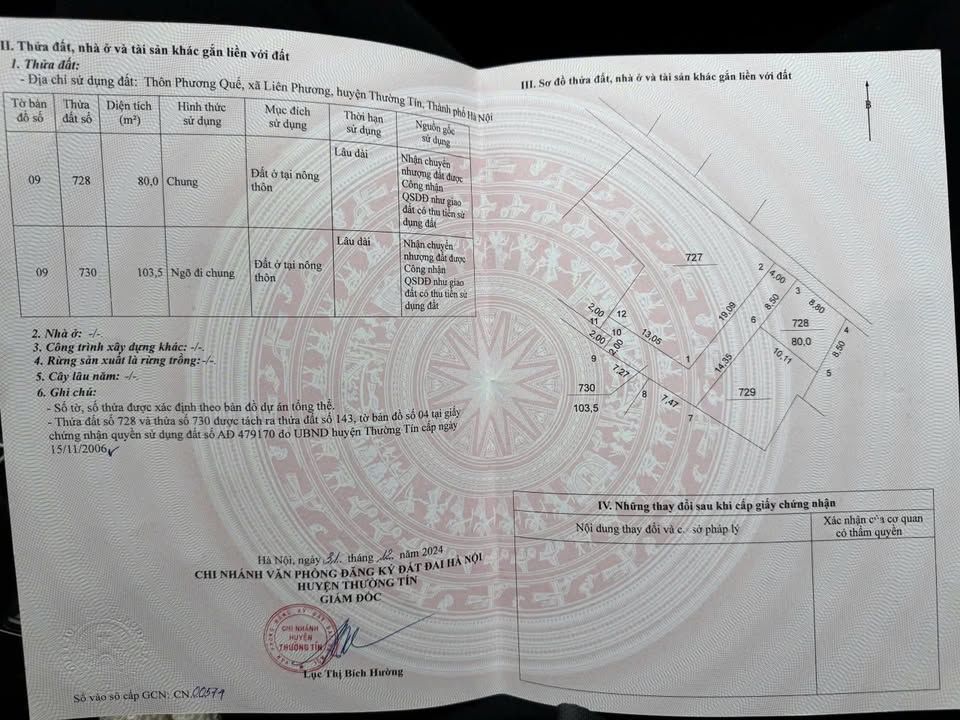 II. Thửa đất, nhà ở và tài sản khác gắn liền với đất
1. Thửa đất:
- Địa chỉ sử dụng đất: Thôn Phương Quế, xã Liên Phương, huyện Thường Tín, Thành phố Hà Nội
Tờ bản đồ số
Thửa đất số
Diện tích (m²)
Hình thức sử dụng
Mục đích sử dụng
Thời hạn sử dụng
Nguồn gốc sử dụng
09
728
80,0
Chung
Đất ở tại nông thôn
Lâu dài
Nhận chuyển
nhượng đất được
Công nhận
QSDĐ như giao
đất có thu tiền sử
dụng đất
09
730
103,5
Ngõ đi chung
Đất ở tại nông thôn
Lâu dài
Nhận chuyển
nhượng đất được
Công nhận
QSDĐ như giao
đất có thu tiền sử
dụng đất
2. Nhà ở: -/-.
3. Công trình xây dựng khác: -/-.
4. Rừng sản xuất là rừng trồng:-/-.
5. Cây lâu năm: -/-.
6. Ghi chú:
- Số tờ, số thửa được xác định theo bản đồ dự án tổng thể.
- Thửa đất số 728 và thửa số 730 được tách ra thửa đất số 143, tờ bản đồ số 04 tại giấy
chứng nhận quyền sử dụng đất số AĐ 479170 do UBND huyện Thường Tín cấp ngày
15/11/2006
Hà Nội, ngày 31 tháng 12 năm 2024
CHI NHÁNH VĂN PHÒNG ĐĂNG KÝ ĐẤT ĐAI HÀ NỘI
HUYỆN THƯỜNG TÍN
GIÁM ĐỐC
CHI NHÁNH
HUYỆN
THƯỜNG TÍN
Lục Thị Bích Hường
Số vào sổ cấp GCN: CN.00571
III. Sơ đồ thửa đất, nhà ở và tài sản khác gắn liền với đất
B
727
2
4,00
3
8,80
8,50
19,09
6
728
80,0
4
8,50
5
10,11
2,00
12
11
10
13,05
2,00
2,00
9
1
14,35
7,27
730
103,5
8
7,47
7
729
IV. Những thay đổi sau khi cấp giấy chứng nhận
Nội dung thay đổi và cơ sở pháp lý
Xác nhận của cơ quan
có thẩm quyền